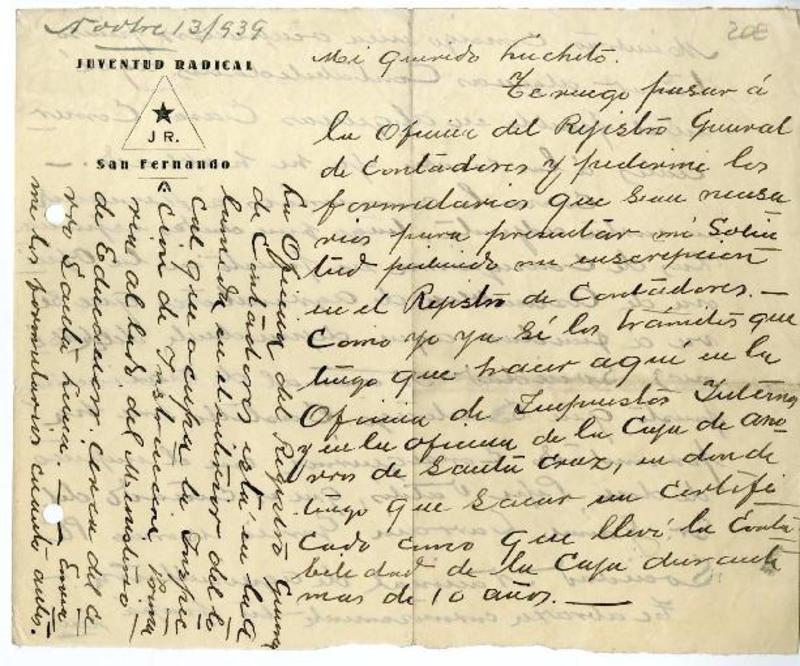 Novbre 13/939
JUVENTUD RADICAL
J R.
San Fernando
Mi querido Luchito.
Te ruego pasar á
la Oficina del Rejistro General
de Contadores y pedirme los
formularios que sean nesesa
rios para presentar mi Solici
tud pidiendo mi inscripcion
en el Rejistro de Contadores. —
Como yo ya sé los trámites que
tengo que hacer aquí en la
Oficina de Impuestos Internos
y en la oficina de la Caja de aho
rros de Santa Cruz, en donde
tengo que sacar un certifi
cado como que llevé la Conta
belidad de la Caja durante
mas de 10 años. —
La Oficina del Rejistro General
de Contadores está en la
en el interior del lo
cal que ocupa la Inspec
cion de Instruccion Prima
ria al lado del Ministerio
de Educacion. Cerca del ce
rro Santa Lucia. — Envia
me los formularios cuanto antes.